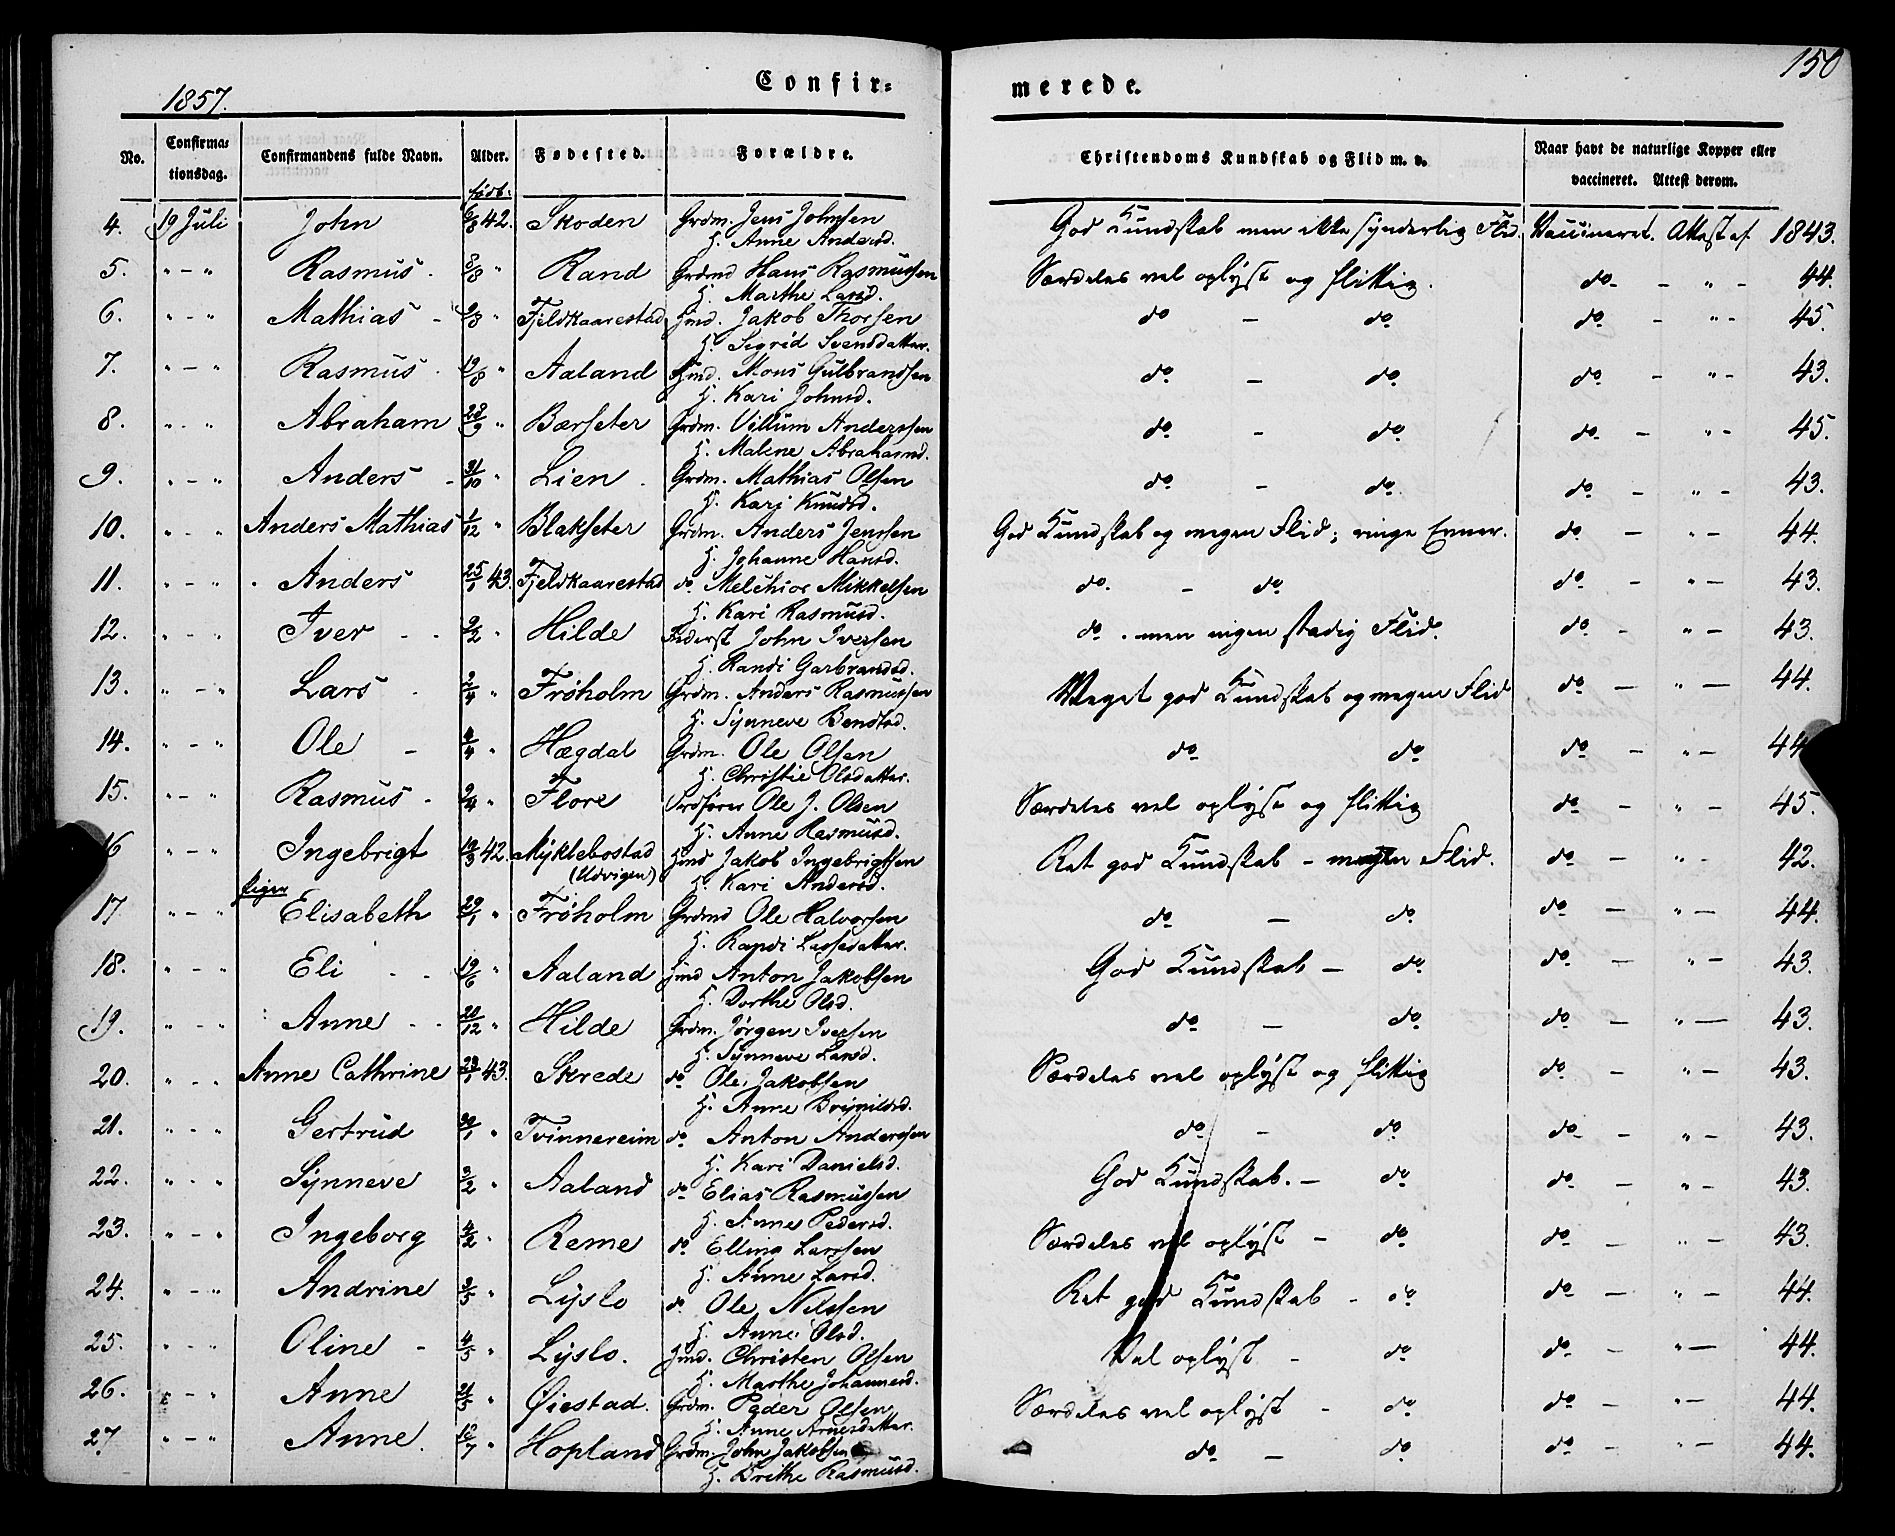 150
1857. Confir= merede.
No. Confirma= tionsdag. Confirmandens fulde Navn. Alder. Fødested. Forældre. Christendoms Kundskab og Flid m. v. Naar havt de naturlige Kopper eller vaccineret. Attest derom.
født:
4. 19 Juli John 6/8 42. Skoden Grdm. Jens Johnsen God Kundskab men ikke synderlig Flid. Vaccineret. Attest af 1843.
H. Anne Andersd.
5. " - " Rasmus. 8/8 " Rand Grdmd Hans Rasmussen Særdeles vel oplyst og flittig. do - " - 44.
H. Marthe Larsd.
6. " - " Mathias - 9/8 " Fjeldkaarestad Hmd. Jakob Thorsen do - do do - " - 45.
H. Sigrid Svensdatter.
7. " - " Rasmus. 19/8 " Aaland Hmd. Mons Gulbrandsen do - do do - " - 43.
H. Kari Johnsd.
8. " - " Abraham 28/9 " Bærseter Grdm. Villum Anderssen do - do do - " - 45.
H. Malene Abrahamd.
9. " - " Anders - 31/10 " Lien. Grdm. Mathias Olsen do - do do - " - 43.
H. Kari Knudsd.
10. " - " Anders Mathias 1/12 " Blakseter Grdm. Anders Jenssen God Kundskab og megen Flid; ringe Evner. do - " - 44.
H. Johanne Hansd.
11. " - " Anders 25/1 43. Fjeldkaarestad do Melchior Mikkelsen do. - do do - " - 43.
H. Kari Rasmusd.
12. " - " Iver - - 9/2 " Hilde Inderst John Iversen do. men ingen stadig Flid. do - " - 43.
H. Randi Garbrandsd.
13. " - " Lars - 2/4 " Frøholm Grdm. Anders Rasmussen Meget god Kundskab og megen Flid do - " - 44.
H. Synneve Bendtsd.
14. " - " Ole - 4/4 " Hægdal Grdm. Ole Olsen do do do - " - 44
H. Christie Olsdatter.
15. " - " Rasmus - 9/4 " Flore Ole J. Olsen Særdeles vel oplyst og flittig do - " - 45.
H. Anne Rasmusd.
16 " - " Ingebrigt 19/3 42. Myklebostad Hmd Jakob Ingebrigtsen Ret god Kundskab - megen Flid. do - " - 42.
(Udvigen) H. Kari Andersd.
Piger
17 " - " Elisabeth 29/1 " Frøholm Grdmd Ole Halvorsen do - do do - " - 44.
H. Randi Lassedatter.
18. " - " Eli - - 19/6 " Aaland Hmd Anton Jakobsen God Kundskab - do do - " - 43.
H. Dorthe Olsd.
19. " - " Anne - - 20/12 " Hilde Grdm. Jørgen Iversen do - do do - " - 43.
H. Synneve Larsd.
20. " - " Anne Cathrine 23/1 43. Skrede do Ole Jakobsen Særdeles vel oplyst og flittig do - " - 43.
H. Anne Brynildsd.
21. " - " Gertrud 30/1 " Tvinnereim do Anton Anderssen do - do do - " - 43.
H. Kari Danielsd.
22. " - " Synneve 3/2 " Aaland do Elias Rasmussen God Kundskab. - do do - " - 43.
H. Anne Pedersd.
23. " - " Ingeborg 4/2 " Reme do Elling Larssen Særdeles vel oplyst - do do - " - 43.
H. Anne Larsd.
24. " - " Andrine 3/5 " Lyslo do Ole Nilssen Ret god Kundskab - do do - " - 44.
H. Anne Olsd.
25. " - " Oline - 4/5 " Lyslo. Hmd. Christen Olsen Vel oplyst - do do - " - 44.
H. Marthe Johannesd.
26. " - " Anne 21/5 " Øiestad. Grdm. Peder Olsen Særdeles vel oplyst - do do - " - 44.
H. Anne Arnesdatter.
27. " - " Anne. 12/7 " Hopland Grdm. John Jakobsen do - do do - " - 44.
H. Brithe Rasmusd.